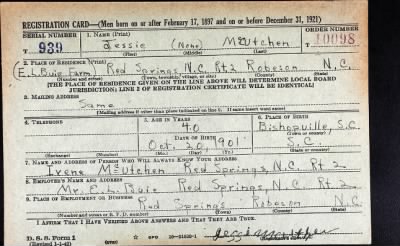 REGISTRATION CARD—(Men born on or after February 17, 1897 and on or before December 31, 1921)
SERIAL NUMBER 1. NAME (Print) ORDER NUMBER
T 939 Jessie (None) McCutchen 10098
(First) (Middle) (Last)
2. PLACE OF RESIDENCE (Print)
(E.L. Buie Farm) Red Springs, N.C. Rt 2 Robeson N.C.
(Number and street) (Town, township, village, or city) (County) (State)
[THE PLACE OF RESIDENCE GIVEN ON THE LINE ABOVE WILL DETERMINE LOCAL BOARD
JURISDICTION; LINE 2 OF REGISTRATION CERTIFICATE WILL BE IDENTICAL]
3. MAILING ADDRESS
Same
(Mailing address if other than place indicated on line 2. If same insert word same)
4. TELEPHONE 5. AGE IN YEARS 6. PLACE OF BIRTH
40 Bishopville, S.C
DATE OF BIRTH (Town or county)
Oct. 20, 1901 S.C
(Exchange) (Number) (Mo.) (Day) (Yr.) (State or country)
7. NAME AND ADDRESS OF PERSON WHO WILL ALWAYS KNOW YOUR ADDRESS
Irene McCutchen Red Springs, N.C. Rt 2
8. EMPLOYER'S NAME AND ADDRESS
Mr. E. L. Buie Red Springs, N.C. Rt 2
9. PLACE OF EMPLOYMENT OR BUSINESS
Red Springs Robeson N.C.
(Number and street or R. F. D. number) (Town) (County) (State)
I AFFIRM THAT I HAVE VERIFIED ABOVE ANSWERS AND THAT THEY ARE TRUE.
D. S. S. Form 1
(Revised 1-1-42) (over) GPO 16—21630-1